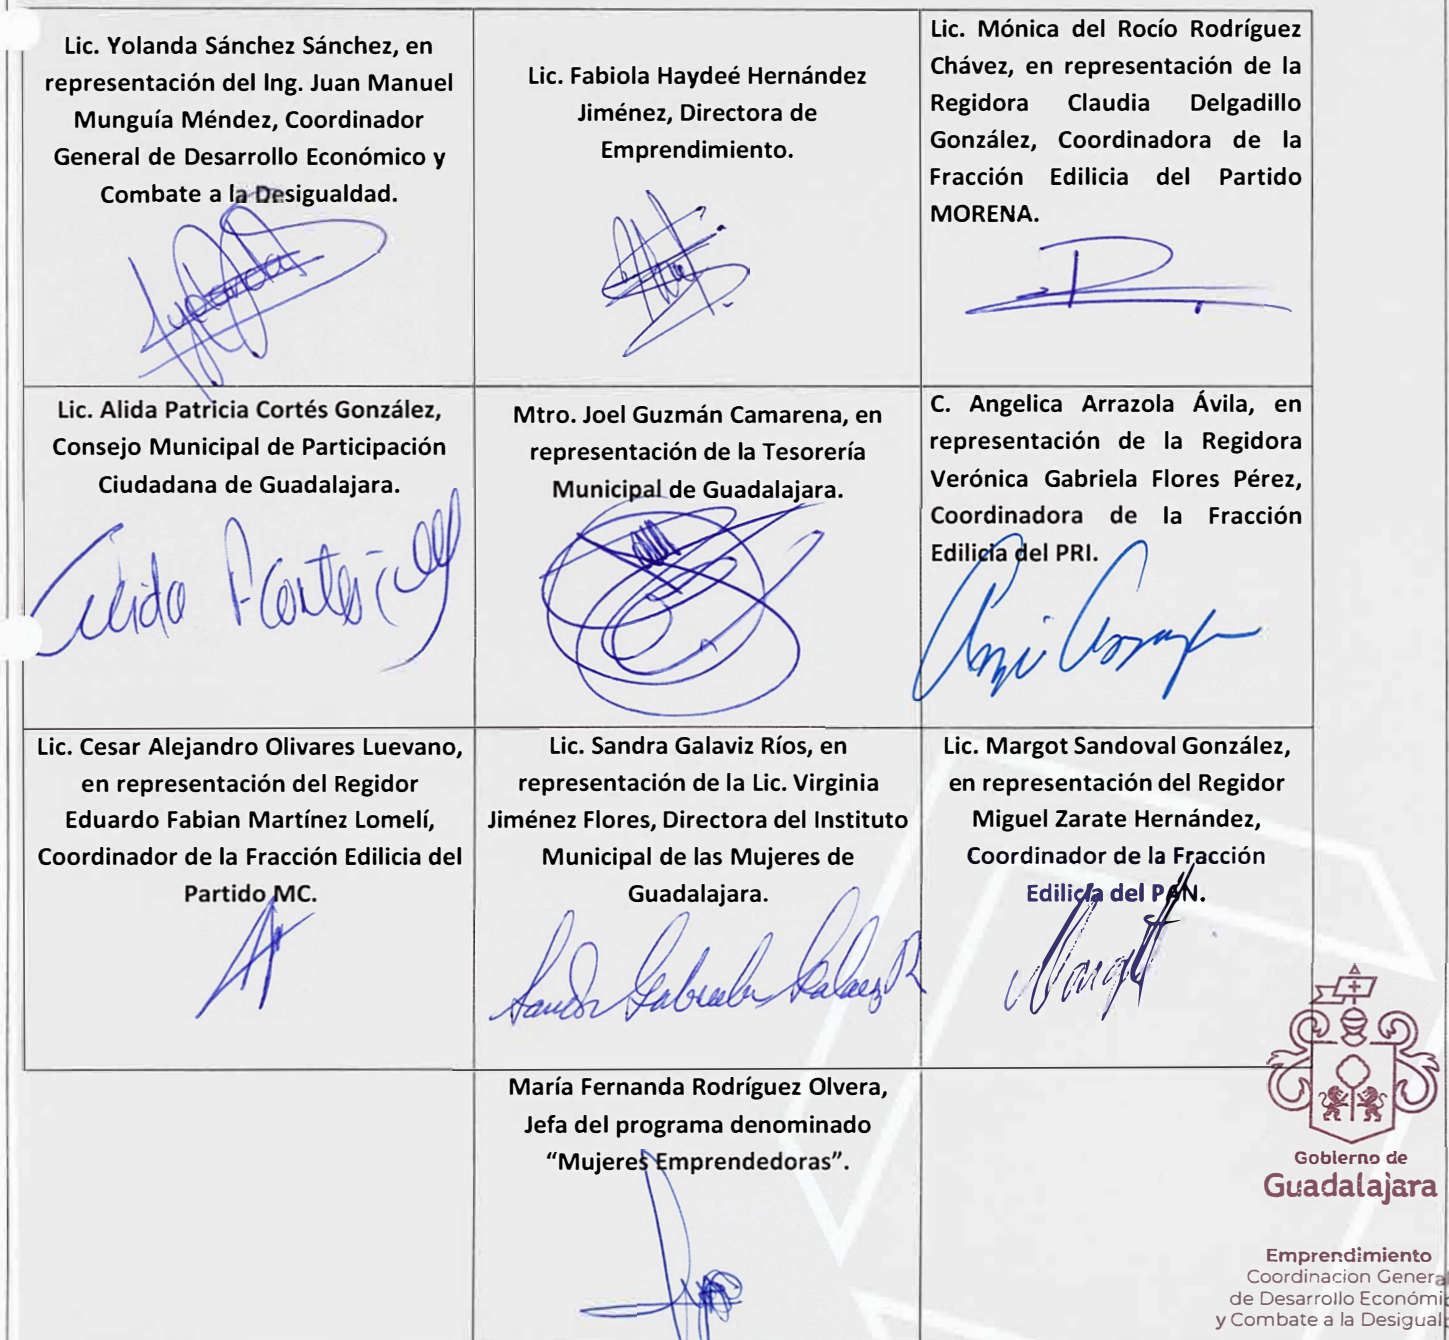 Lic. Yolanda Sánchez Sánchez, en
representación del Ing. Juan Manuel
Munguía Méndez, Coordinador
General de Desarrollo Económico y
Combate a la Desigualdad.
Lic. Fabiola Haydeé Hernández
Jiménez, Directora de
Emprendimiento.
Lic. Mónica del Rocío Rodríguez
Chávez, en representación de la
Regidora Claudia Delgadillo
González, Coordinadora de la
Fracción Edilicia del Partido
MORENA.
Lic. Alida Patricia Cortés González,
Consejo Municipal de Participación
Ciudadana de Guadalajara.
Mtro. Joel Guzmán Camarena, en
representación de la Tesorería
Municipal de Guadalajara.
C. Angelica Arrazola Ávila, en
representación de la Regidora
Verónica Gabriela Flores Pérez,
Coordinadora de la Fracción
Edilicia del PRI.
Lic. Cesar Alejandro Olivares Luevano,
en representación del Regidor
Eduardo Fabian Martínez Lomelí,
Coordinador de la Fracción Edilicia del
Partido MC.
Lic. Sandra Galaviz Ríos, en
representación de la Lic. Virginia
Jiménez Flores, Directora del Instituto
Municipal de las Mujeres de
Guadalajara.
Lic. Margot Sandoval González,
en representación del Regidor
Miguel Zarate Hernández,
Coordinador de la Fracción
Edilicia del PAN.
María Fernanda Rodríguez Olvera,
Jefa del programa denominado
“Mujeres Emprendedoras”.
Gobierno de
Guadalajara
Emprendimiento
Coordinacion General
de Desarrollo Económi
y Combate a la Desigual